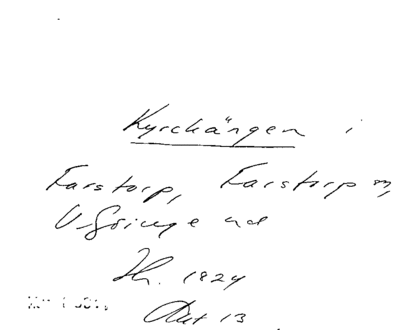 Kyrckängen i
Farstorp, Farstorp m,
V. Göinge hd
Jh. 1824
Akt 13